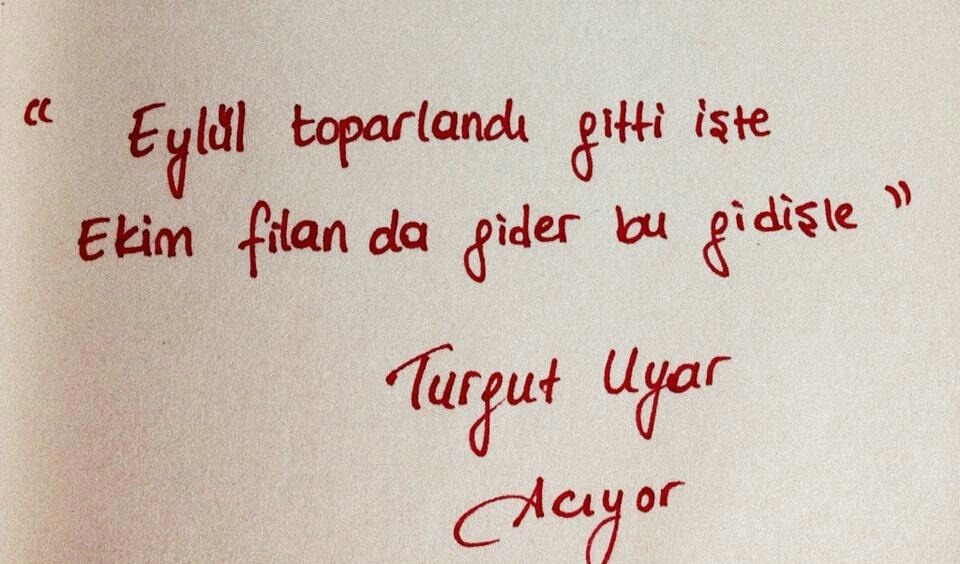 “ Eylül toparlandı gitti işte
Ekim filan da gider bu gidişle ”
Turgut Uyar
Acıyor